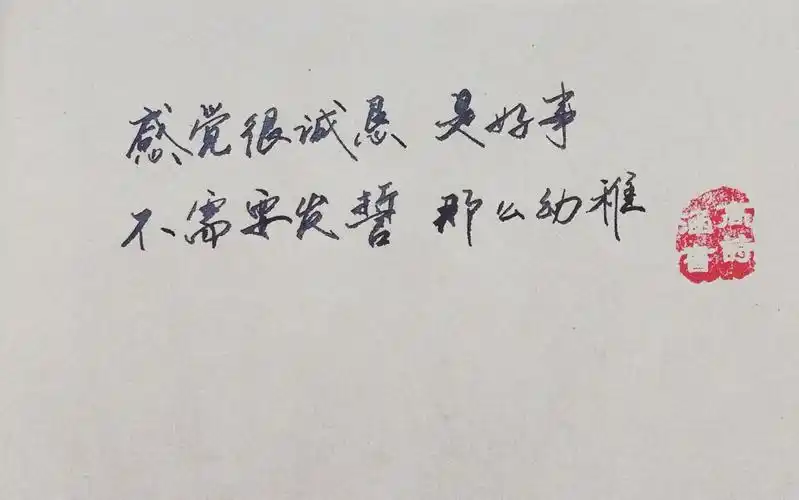 感觉很诚恳 是好事
不需要发誓 那么幼稚